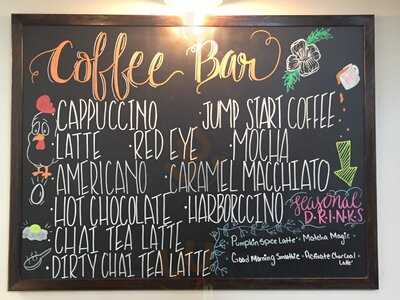 Coffee Bar
·CAPPUCCINO ·JUMP START COFFEE
·LATTE ·RED EYE ·MOCHA
·AMERICANO ·CARAMEL MACCHIATO
·HOT CHOCOLATE ·HARBORCCINO
·CHAI TEA LATTE
·DIRTY CHAI TEA LATTE
Seasonal
D·R·I·N·K·S
·Pumpkin Spice Latte· ·Matcha Magic·
·Good Morning Smoothie ·Activate Charcoal
Latte·